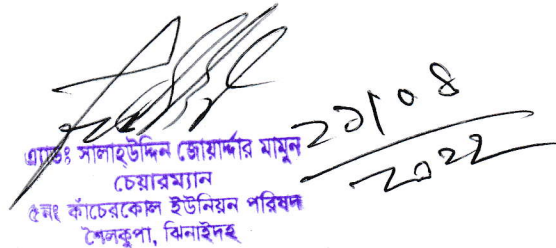 এ্যাডঃ সালাহ্উদ্দিন জোয়ার্দ্দার মামুন
চেয়ারম্যান
৫নং কাঁচেরকোল ইউনিয়ন পরিষদ
শৈলকুপা, ঝিনাইদহ